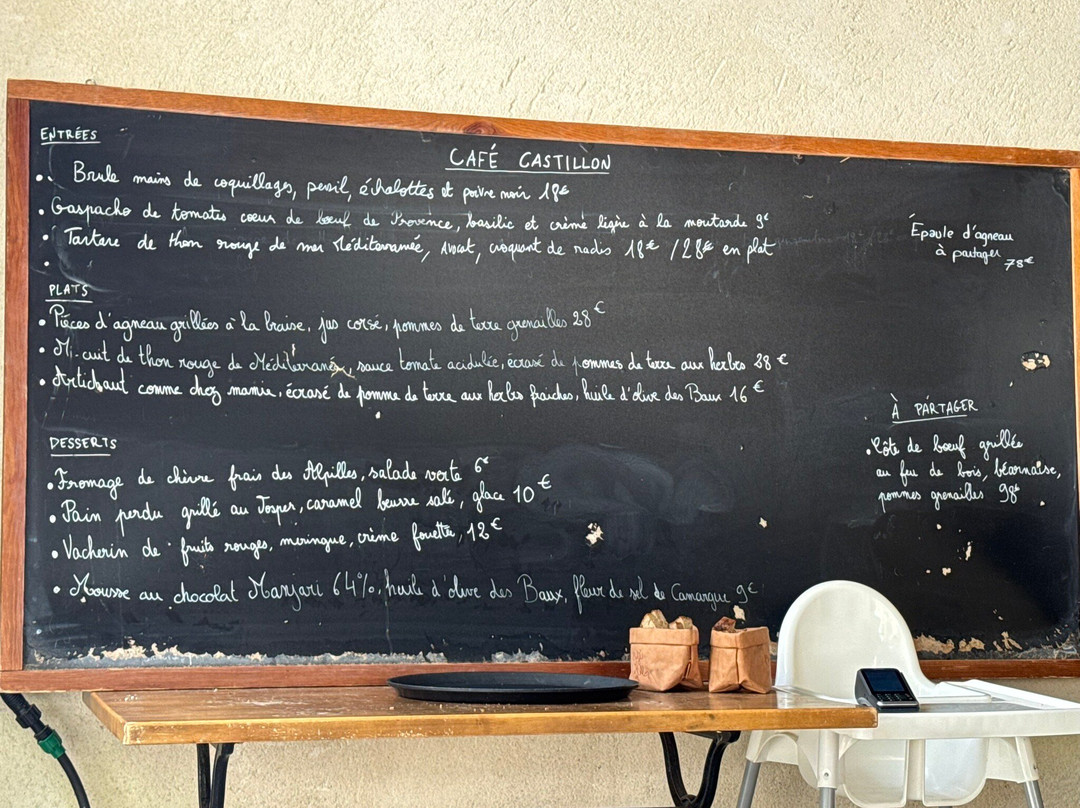 CAFÉ CASTILLON
ENTRÉES
• Brule mains de coquillages, persil, échalottes et poivre noir 18€
• Gaspacho de tomates coeur de bœuf de Provence, basilic et crème ligère à la moutarde 9€
• Tartare de thon rouge de mer Méditerranée, avocat, croquant de radis 18€ / 28€ en plat
•
PLATS
• Pièces d'agneau grillées à la braise, jus corsé, pommes de terre grenailles 28€
• Mi-cuit de thon rouge de Méditerranée, sauce tomate acidulée, écrasé de pommes de terre aux herbes 28€
• Artichaut comme chez mamie, écrasé de pomme de terre aux herbes fraiches, huile d'olive des Baux 16€
DESSERTS
• Fromage de chèvre frais des Alpilles, salade verte 6€
• Pain perdu grillé au Josper, caramel beurre salé, glace 10€
• Vacherin de fruits rouges, meringue, crème fouettée, 12€
• Mousse au chocolat Manjari 64%, huile d'olive des Baux, fleur de sel de Camargue 9€
Épaule d'agneau
à partager 78€
À PARTAGER
• Côte de bœuf grillée
au feu de bois, béarnaise,
pommes grenailles 98€